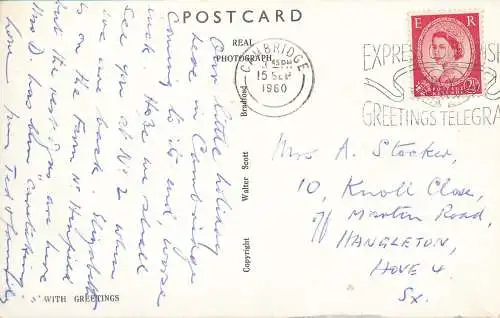 POSTCARD
REAL
PHOTOGRAPH
Copyright Walter Scott Bradford
Our little holiday
here in Cambridge
Coming to its end, worse
luck. Hope we shall
see you at No 2 when
we are back. Elizabeth
is on the Farm Nr Henfield
but the rest of us are here
Mrs D. has been
love from Ted & family
WITH GREETINGS
CAMBRIDGE
15 SEP
1960
E R
POSTAGE REVENUE
2½D
EXPRESS
GREETINGS TELEGRA
Mrs A. Stocker,
10, Knoll Close,
off Morton Road,
HANGLETON,
HOVE 4
Sx.